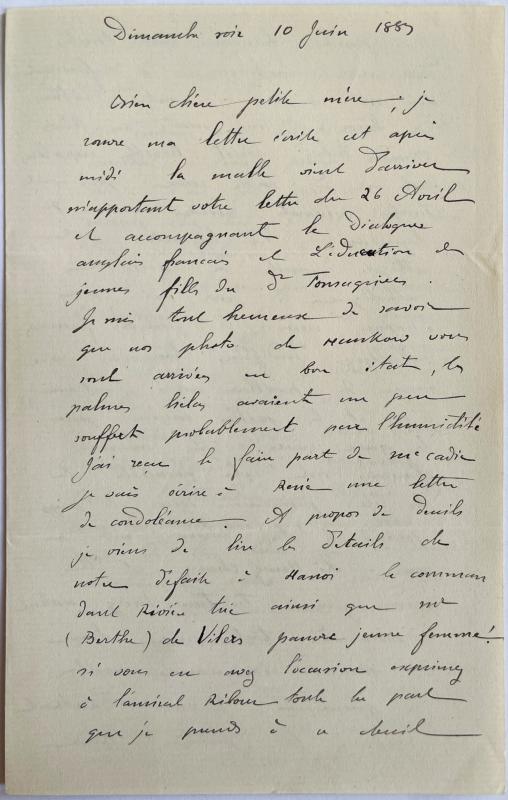 Dimanche soir 10 Juin 1883
Bien chère petite mère, je
rouvre ma lettre écrite cet après
midi la malle vient d'arriver
m'apportant votre lettre du 26 Avril
et accompagnant le Dialogues
anglais français et L'éducation des
jeunes filles du Dr Fonssagrives.
Je suis tout heureuse de savoir
que nos photo de Hankow vous
sont arrivées en bon état, les
palmes lilas avaient un peu
souffert probablement par l'humidité
J'ai reçu le faire part de
je vais écrire à une lettre
de condoléance. A propos de deuils
je viens de lire les détails de
notre défaite à Hanoi le comman
dant Rivière tué ainsi que mr
(Berthe) de Vilers pauvre jeune femme!
si vous en avez l'occasion exprimez
à l'amiral Ribour toute la part
que je prends à ce deuil